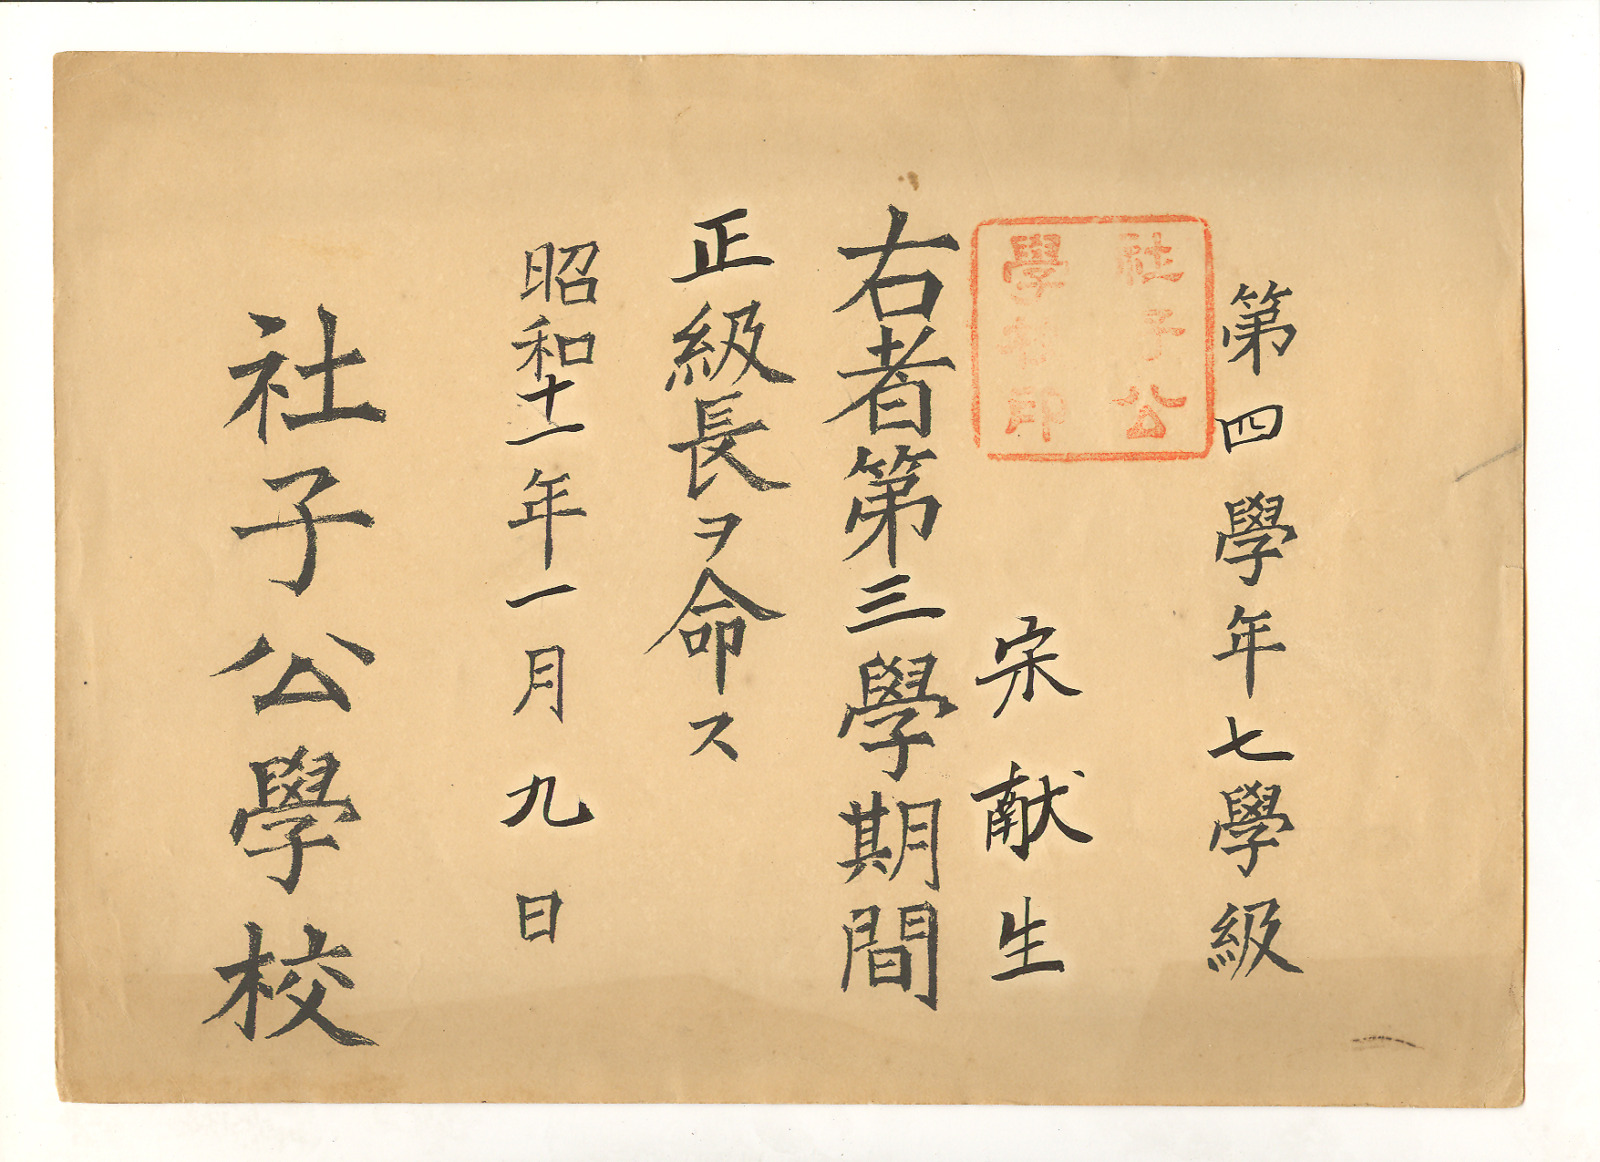 第四學年七學級
社子公
學校印
宋献生
右者第三學期間
正級長ヲ命ス
昭和十一年一月九日
社子公學校